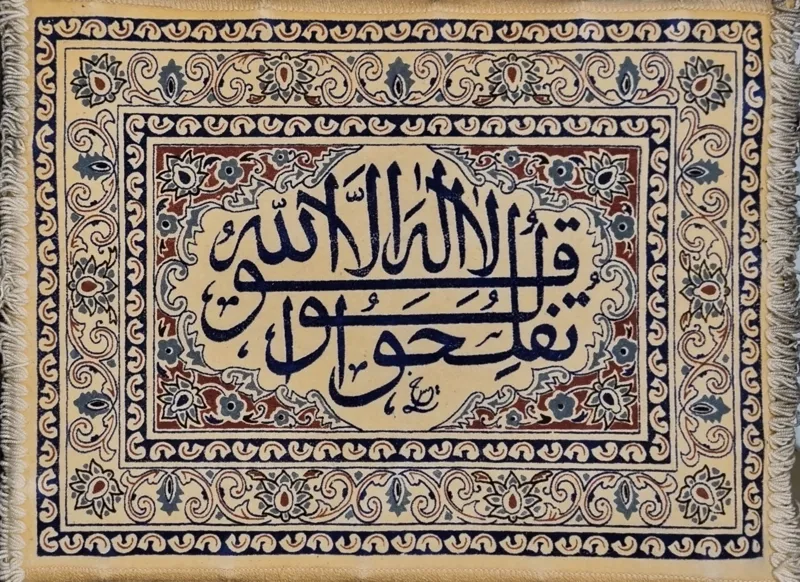 قولوا لا إله إلا الله
تفلحوا